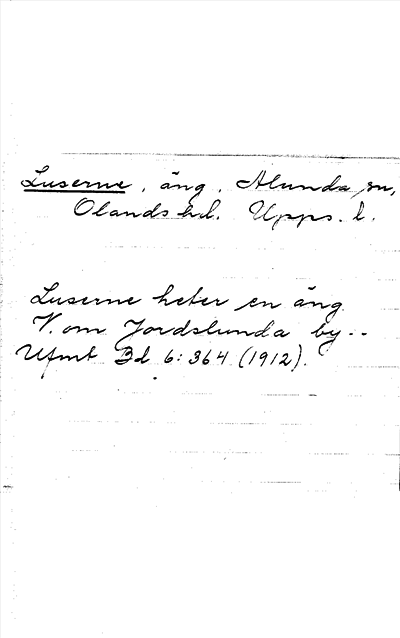 Luserne, äng, Alunda sn,
Olands hd. Upps. l.
Luserne heter en äng
V. om Jordslunda by --
Ufmt Bd 6: 364 (1912).